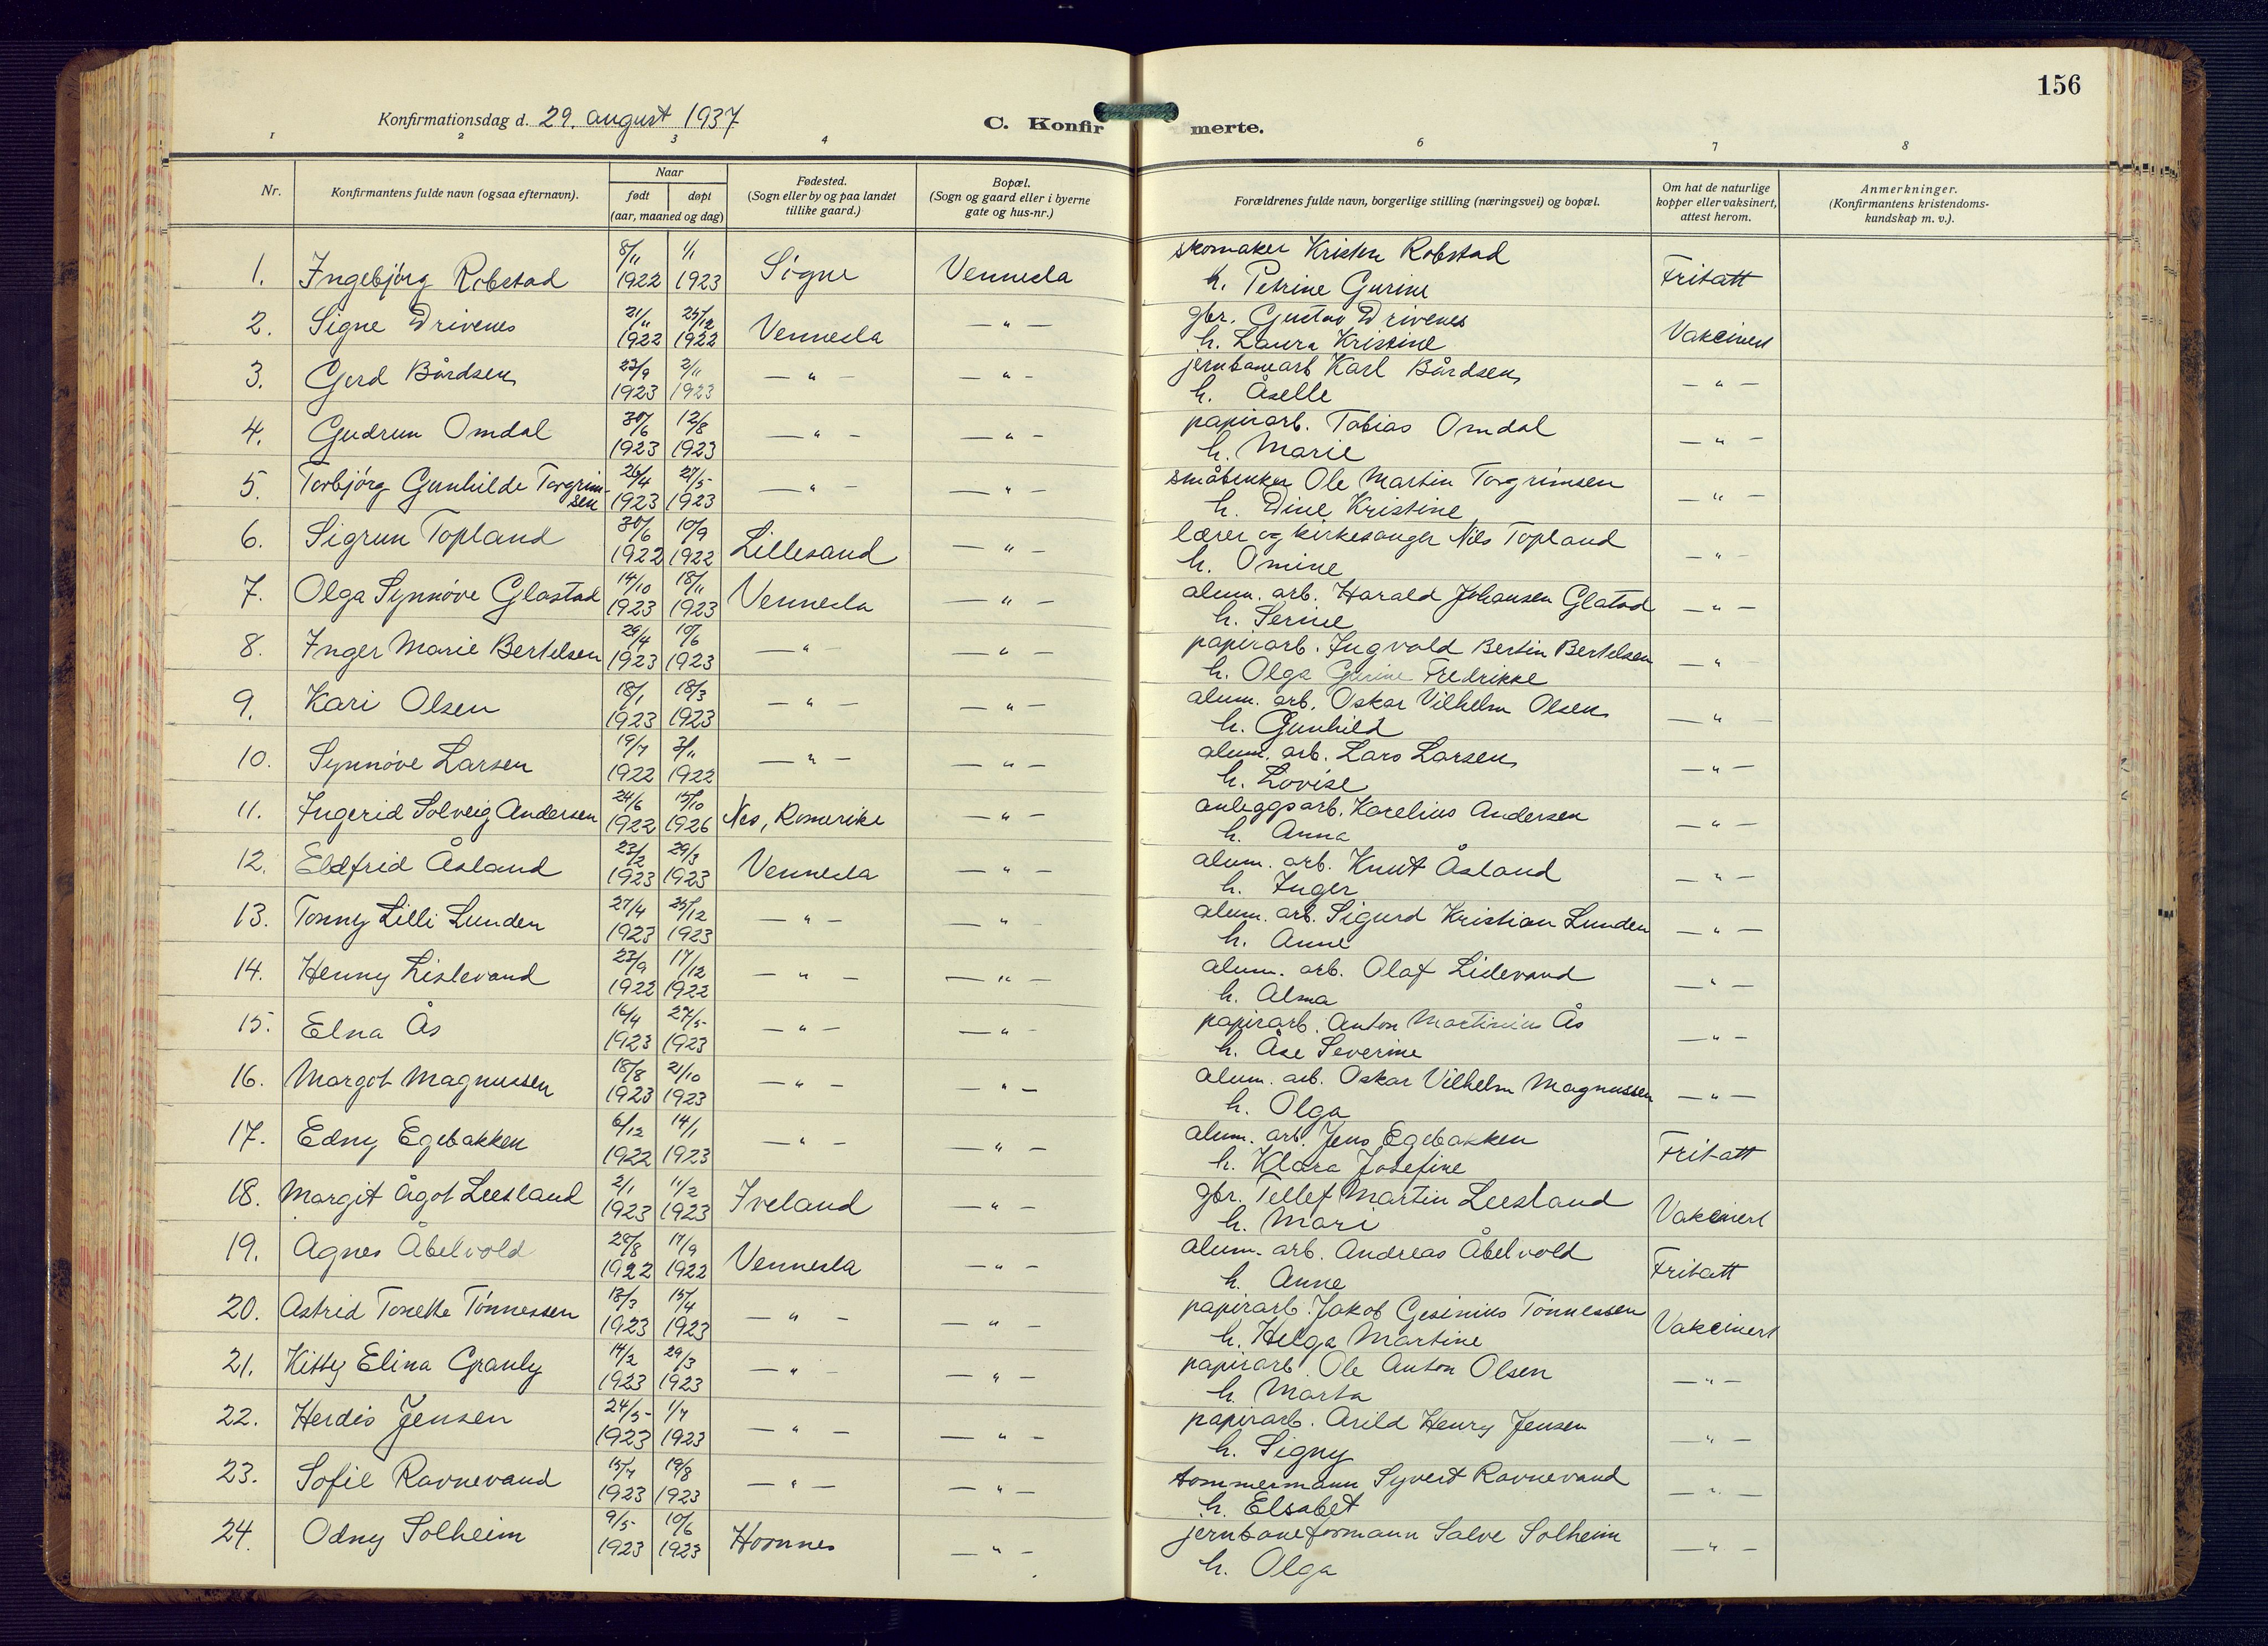 156
Konfirmationsdag d. 29. august 1937
C. Konfirmerte.
1 2 3 4 6 7 8
Nr. Konfirmantens fulde navn (ogsaa efternavn). Naar født døpt (aar, maaned og dag) Fødested. (Sogn eller by og paa landet tillike gaard.) Bopæl. (Sogn og gaard eller i byerne gate og hus-nr.) Forældrenes fulde navn, borgerlige stilling (næringsvei) og bopæl. Om hat de naturlige kopper eller vaksinert, attest herom. Anmerkninger. (Konfirmantens kristendomskundskap m. v.).
1. Ingebjørg Robstad 8/11 1922 1/1 1923 Søgne Vennesla skomaker Kristen Robstad
h. Petrine Gurine Fritatt
2. Signe Drivenes 21/11 1922 25/12 1922 Vennesla — " — gbr. Gustav Drivenes
h. Laura Kristine Vakcinert
3. Gerd Bårdsen 23/9 1923 2/11 1923 — " — — " — jernbanearb Karl Bårdsen
h. Åselle — " —
4. Gudrun Omdal 30/6 1923 12/8 1923 — " — — " — papirarb. Tobias Omdal
h. Marie — " —
5. Torbjørg Gunhilde Torgrimsen 26/4 1923 27/5 1923 — " — — " — småbruker Ole Martin Torgrimsen
h. Dine Kristine — " —
6. Sigrun Topland 30/6 1922 10/9 1922 Lillesand — " — lærer og kirkesanger Nils Topland
h. Omine — " —
7. Olga Synnøve Glastad 14/10 1923 18/11 1923 Vennesla — " — alum. arb. Harald Johansen Glatad
h. Serine — " —
8. Inger Marie Bertelsen 29/4 1923 10/6 1923 — " — — " — papirarb. Ingvald Bertin Bertelsen
h. Olga Gurine Fredrikke — " —
9. Kari Olsen 18/1 1923 18/3 1923 — " — — " — alum. arb. Oskar Vilhelm Olsen
h. Gunhild — " —
10. Synnøve Larsen 19/7 1922 3/11 1922 — " — — " — alum. arb. Lars Larsen
h. Lovise — " —
11. Ingerid Solveig Andersen 24/6 1922 15/10 1926 Nes, Romerike — " — anleggsarb. Karelius Andersen
h. Anna — " —
12. Eldfrid Åsland 23/2 1923 29/3 1923 Vennesla — " — alum. arb. Knut Åsland
h. Inger — " —
13. Tonny Lilli Lunden 27/4 1923 25/12 1923 — " — " alum. arb. Sigurd Kristian Lunden
h. Anne — " —
14. Henny Lislevand 23/9 1922 17/12 1922 — " — — " — alum. arb. Olaf Lislevand
h. Alma — " —
15. Elna Ås 16/4 1923 27/5 1923 — " — — " — papirarb. Anton Martinius Ås
h. Åse Severine — " —
16. Margot Magnussen 18/8 1923 21/10 1923 — " — " — alum. arb. Oskar Vilhelm Magnussen
h. Olga — " —
17. Edny Egebakken 6/12 1922 14/1 1923 — " — — " — alum. arb. Jens Egebakken
h. Klara Josefine Fritatt
18. Margit Ågot Leesland 2/1 1923 11/2 1923 Iveland — " — gbr. Tellef Martin Leesland
h. Mari Vakcinert
19. Agnes Åbelvold 29/8 1922 17/9 1922 Vennesla — " — alum. arb. Andreas Åbelvold
h. Anne Fritatt
20. Astrid Tonette Tønnessen 13/3 1923 15/4 1923 — " — — " — papirarb. Jakob Gesinius Tønnessen
h. Helga Martine Vakcinert
21. Kitty Elina Granly 14/2 1923 29/3 1923 — " — " — papirarb. Ole Anton Olsen
h. Marta — " —
22. Herdis Jensen 24/5 1923 1/7 1923 — " — — " — papirarb. Arild Henry Jensen
h. Signy — " —
23. Sofie Ravnevand 15/7 1923 19/8 1923 — " — — " — tømmermann Syvert Ravnevand
h. Elsabet — " —
24. Odny Solheim 9/5 1923 10/6 1923 Hornnes — " — jernbaneformann Salve Solheim
h. Olga — " —